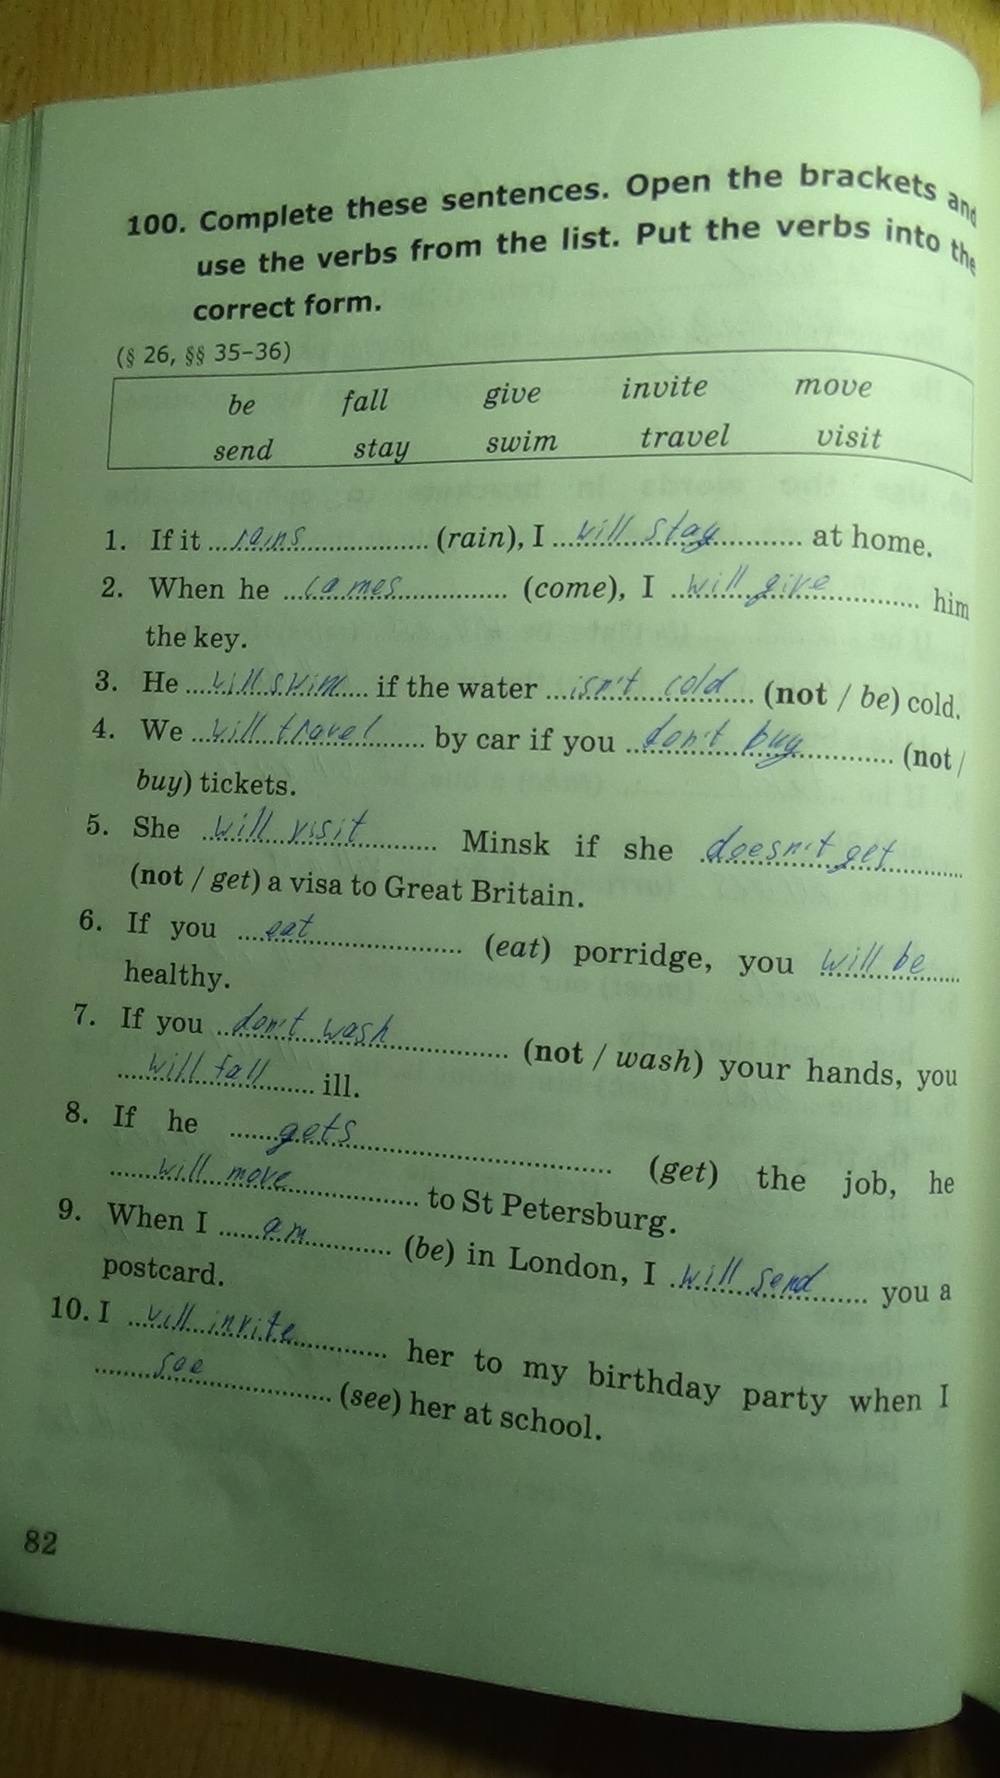 100. Complete these sentences. Open the brackets and
use the verbs from the list. Put the verbs into the
correct form.
(§ 26, §§ 35–36)
be fall give invite move
send stay swim travel visit
1. If it ... rains ... (rain), I ... will stay ... at home.
2. When he ... comes ... (come), I ... will give ... him
the key.
3. He ... will swim ... if the water ... isn't cold ... (not / be) cold.
4. We ... will travel ... by car if you ... don't buy ... (not /
buy) tickets.
5. She ... will visit ... Minsk if she ... doesn't get ...
(not / get) a visa to Great Britain.
6. If you ... eat ... (eat) porridge, you will be ...
healthy.
7. If you ... don't wash ... (not / wash) your hands, you
... will fall ... ill.
8. If he ... gets ... (get) the job, he
... will move ... to St Petersburg.
9. When I ... am ... (be) in London, I ... will send ... you a
postcard.
10. I ... will invite ... her to my birthday party when I
... see ... (see) her at school.
82